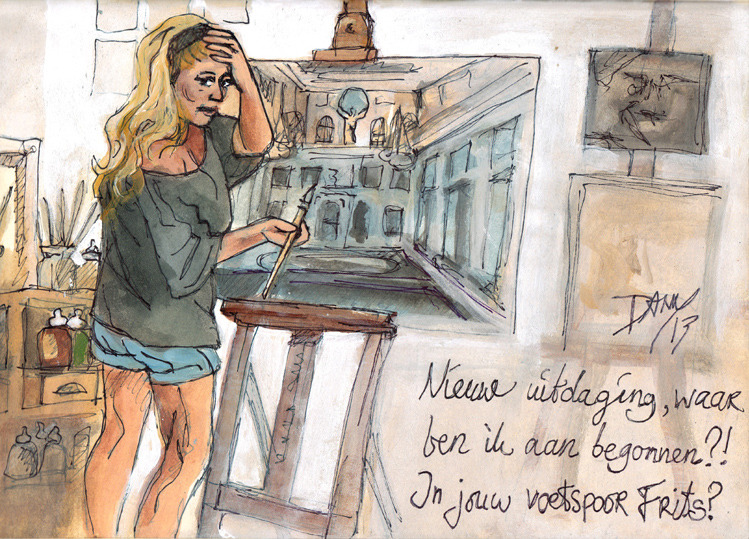 DANN
/13
Nieuw uitdaging, waar
ben ik aan begonnen?!
In jouw voetspoor Frits?